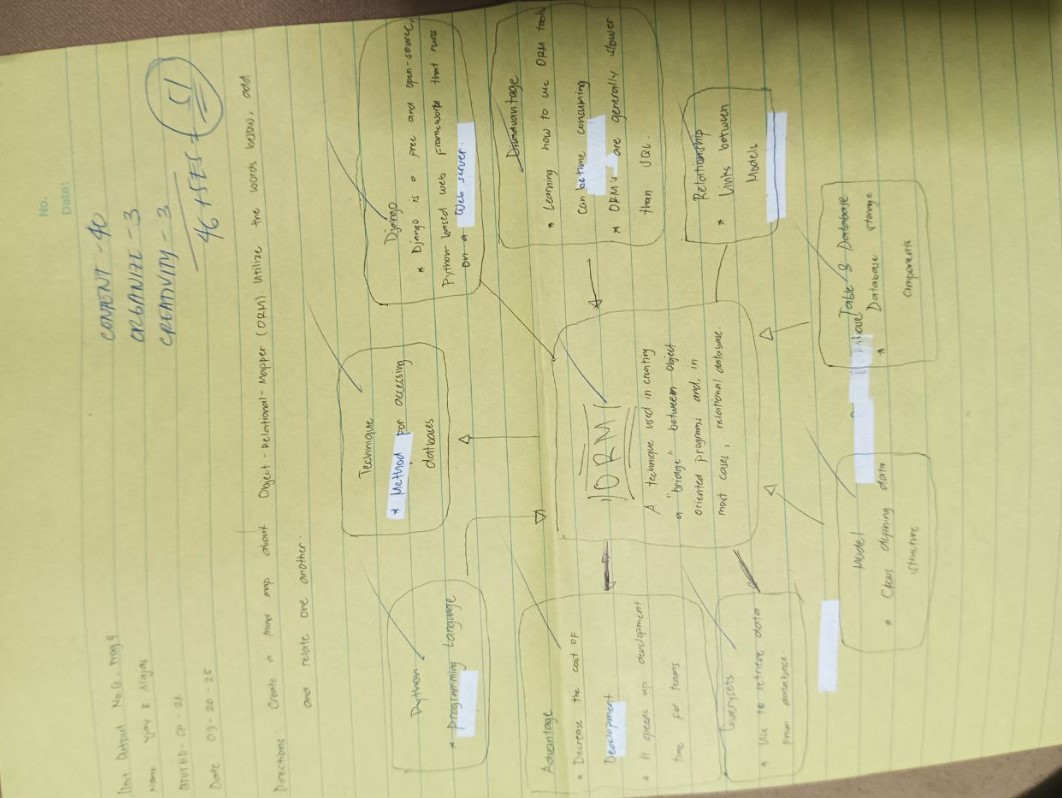 No.
Date:
CONTENT - 40
ORGANIZE - 3
CREATIVITY - 3
46 + 5ES = 51
Unit Output No. 6
Name Yjay R
Date 03-20-25
Directions: Create a map about Object-Relational-Mapper (ORM). Utilize the words below, add
and relate one another.
Technique
* Method for accessing
datbases
Python
* Programming Language
Django
* Django is a free and open-source,
Python-based web framework that runs
on a Web server.
Advantage
* Decrease the cost of
Development
* It speeds up development
time for teams
ORM
A technique used in creating
a "bridge" between object
oriented programs and, in
most cases, relational database.
Disadvantage
* Learning how to use ORM tools
can be time consuming
* ORM's are generally slower
than SQL.
Relationship
* Links between
Models
Querysets
* Use to retrieve data
from database.
Model
* Class defining data
structure
Table & Database
* Database storage
components